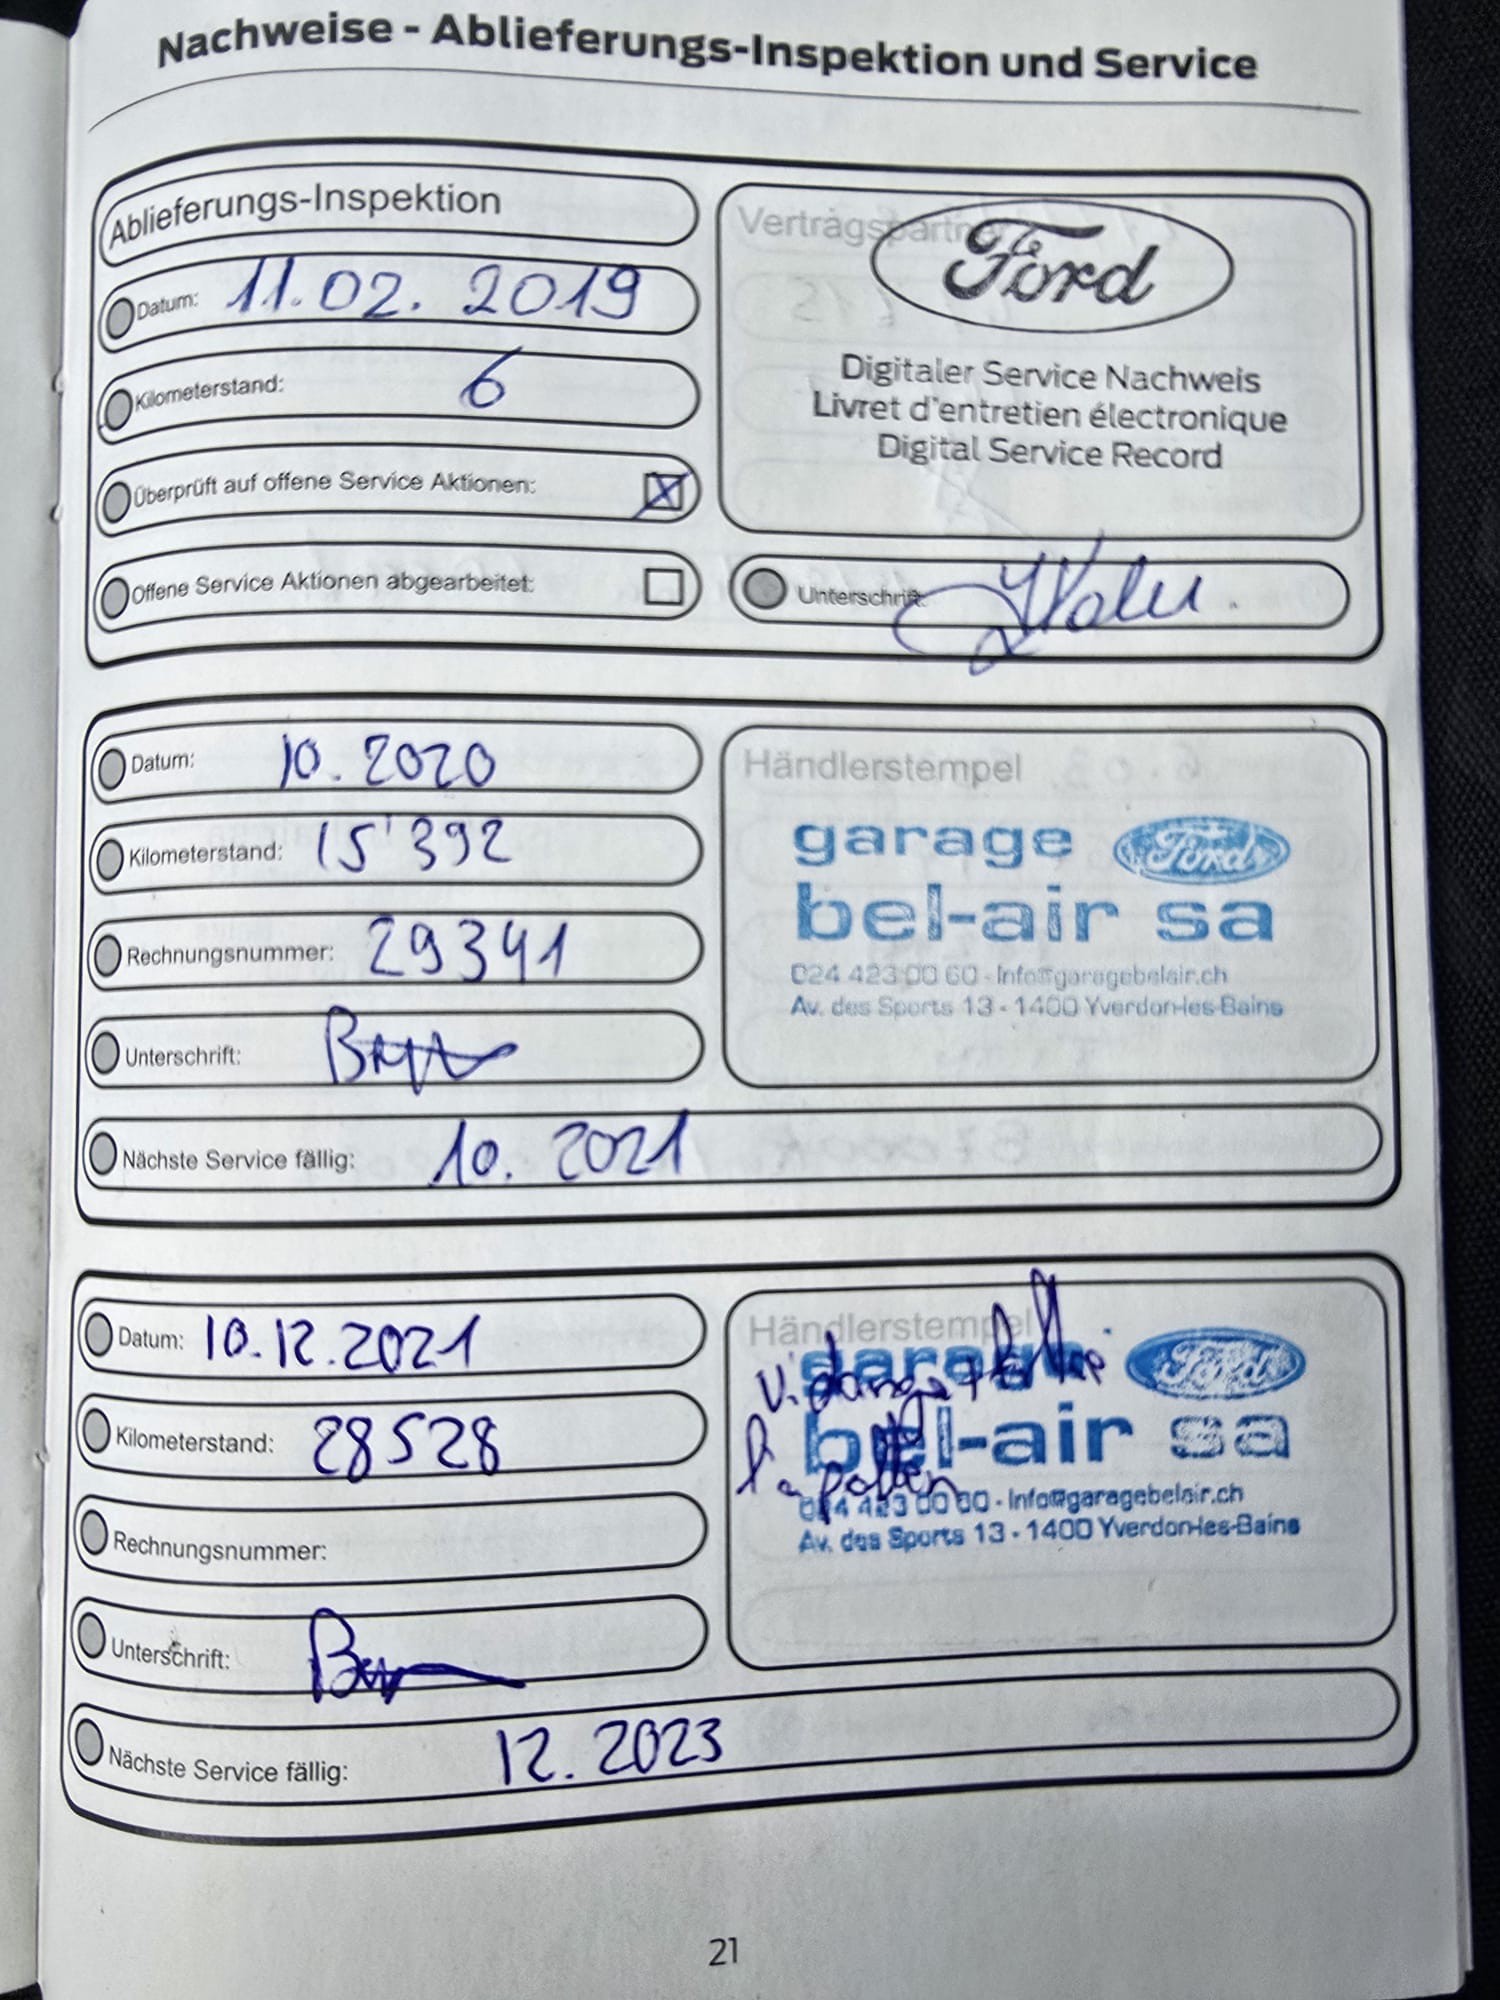 Nachweise - Ablieferungs-Inspektion und Service
Ablieferungs-Inspektion
Datum: 11.02.2019
Kilometerstand: 6
Überprüft auf offene Service Aktionen: X
Offene Service Aktionen abgearbeitet:
Vertragspartner
Ford
Digitaler Service Nachweis
Livret d'entretien électronique
Digital Service Record
Unterschrift:
Datum: 10.2020
Kilometerstand: 15'392
Rechnungsnummer: 29341
Unterschrift:
Nächste Service fällig: 10.2021
Händlerstempel
garage Ford
bel-air sa
024 423 00 60 - Info@garagebelair.ch
Av. des Sports 13 - 1400 Yverdon-les-Bains
Datum: 10.12.2021
Kilometerstand: 28528
Rechnungsnummer:
Unterschrift:
Nächste Service fällig: 12.2023
Händlerstempel
vidange
garage Ford
bel-air sa
pollen
024 423 00 60 - Info@garagebelair.ch
Av. des Sports 13 - 1400 Yverdon-les-Bains
21